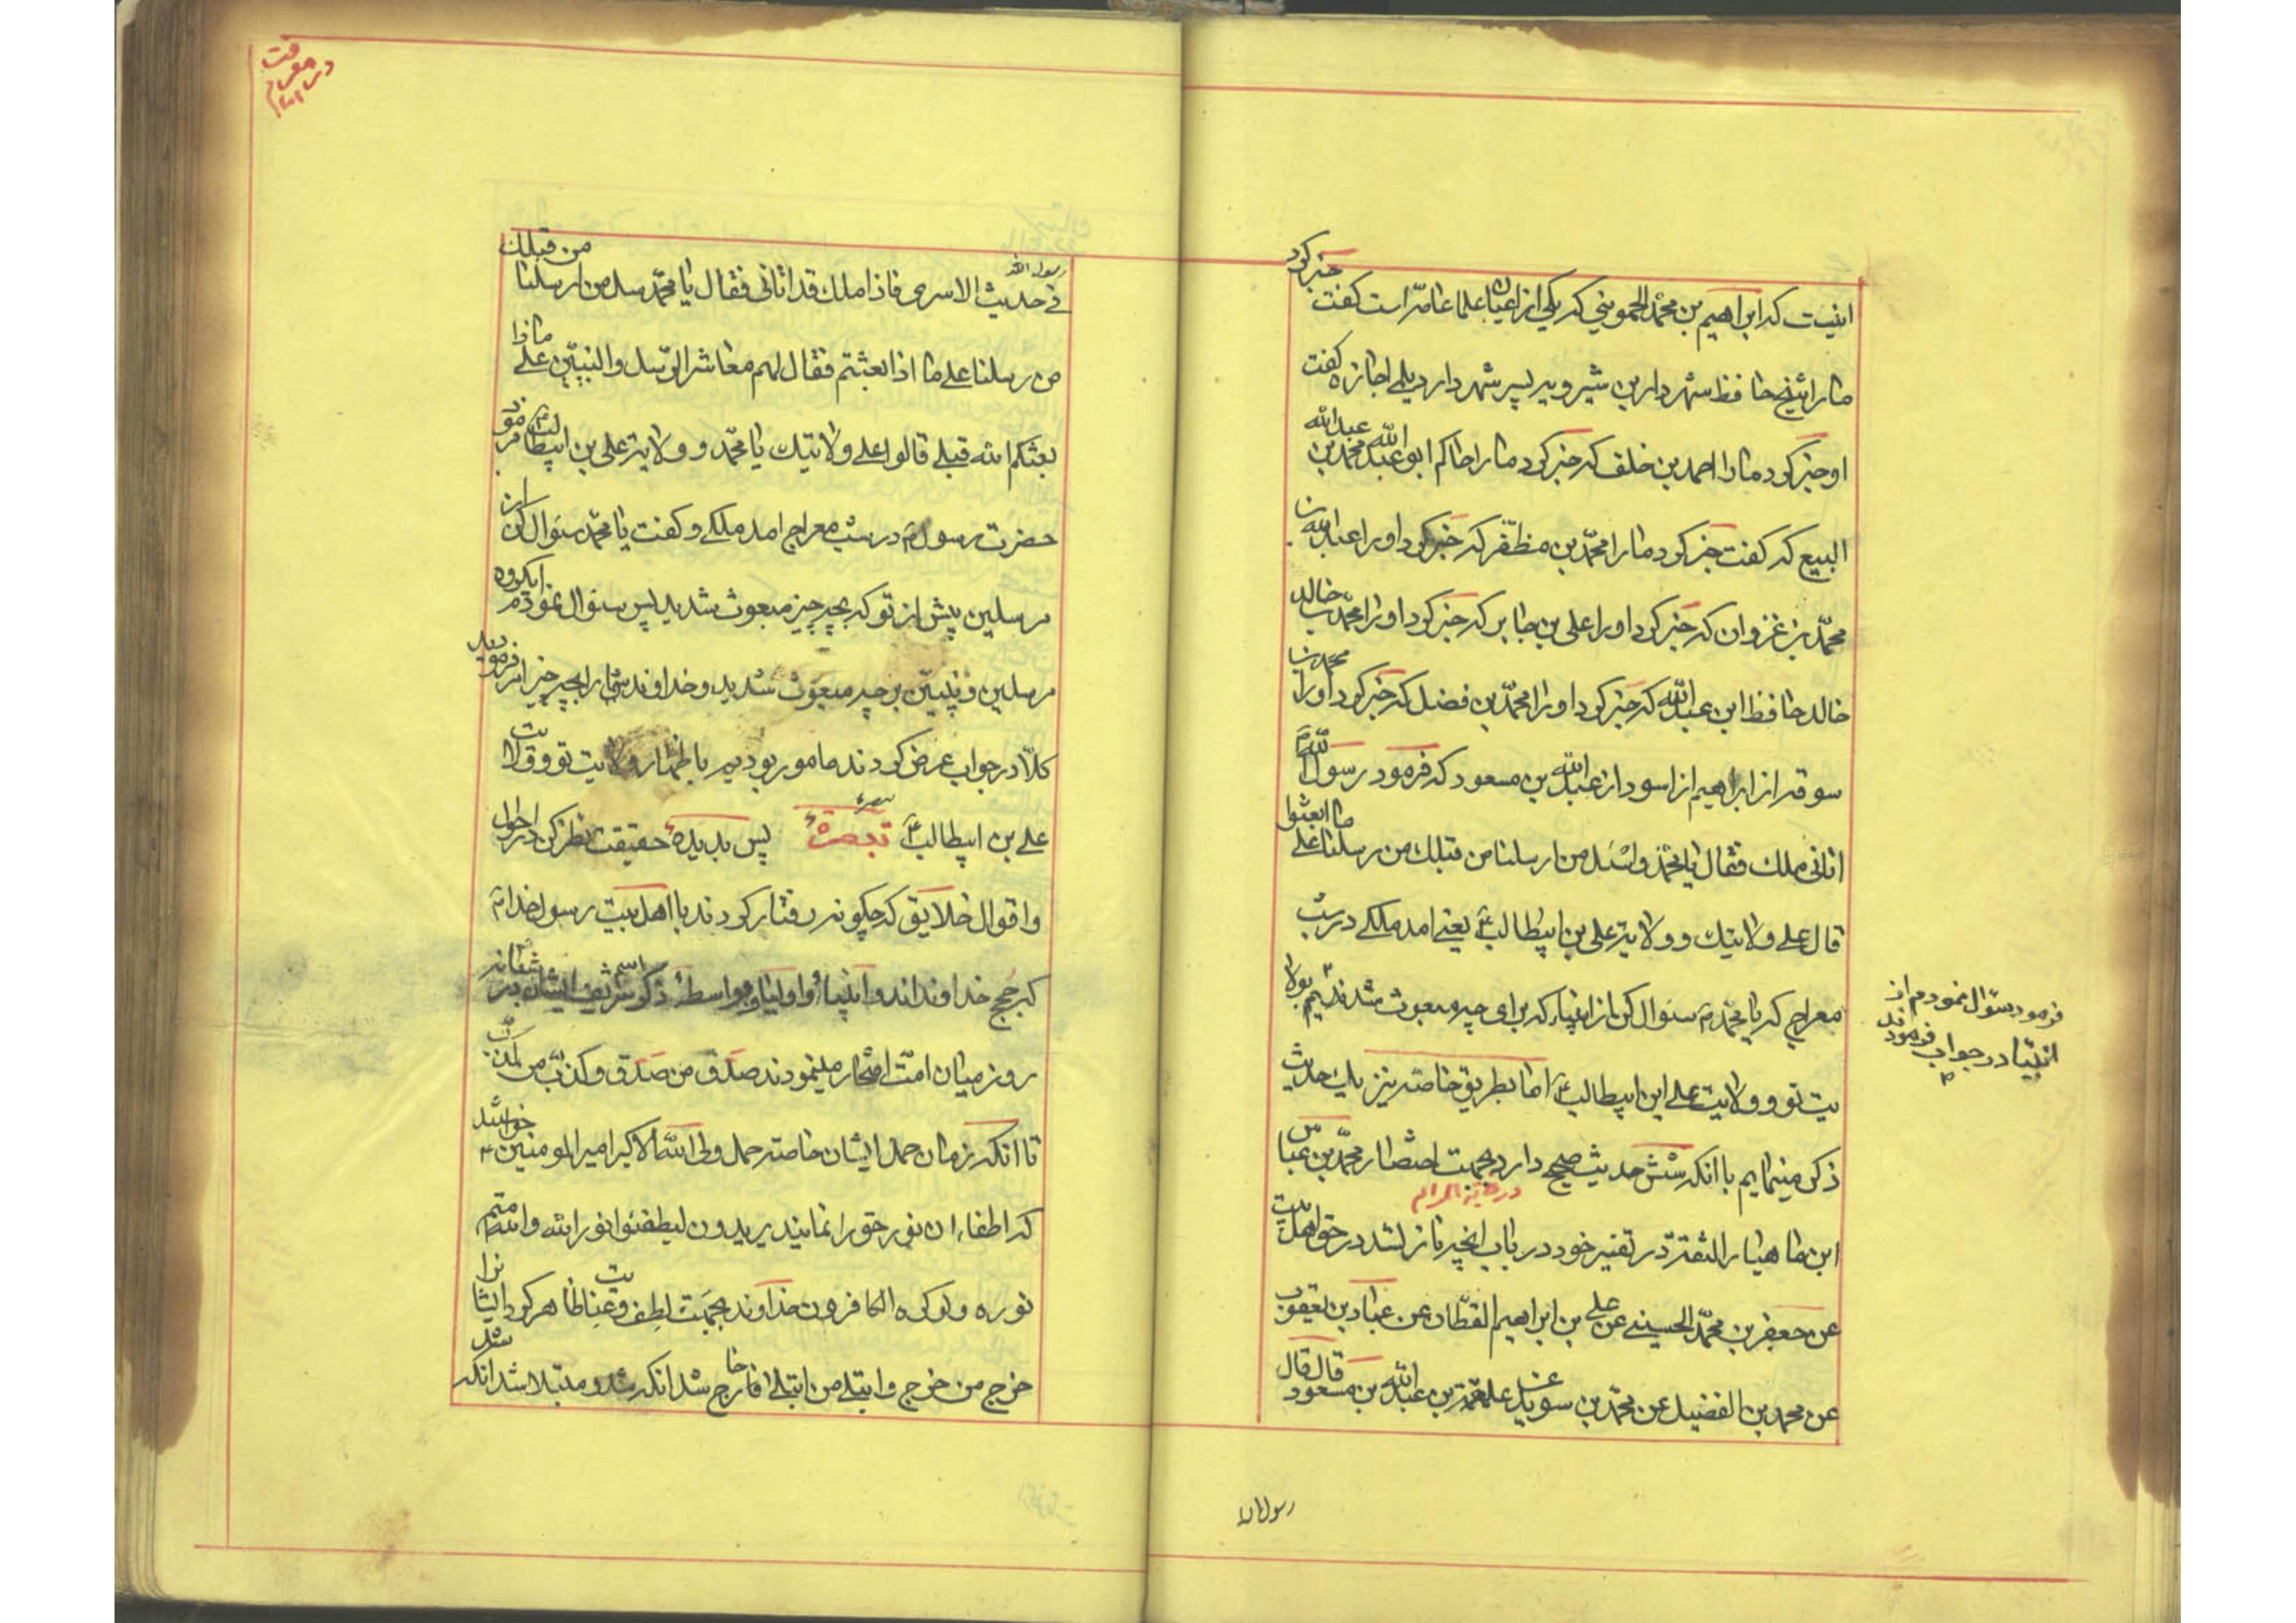 اینست که ابراهیم بن محمد الحموینی که یکی از اعیان علما عامّه است کفت خبر کرد
ما را شیخ حافظ شهردار بن شیرویه پسر شهردار دیلمی اجازه کفت
او خبر کرد ما را احمد بن خلف که خبر کرد ما را حاکم ابو عبد الله محمد بن عبدالله
البیع که کفت خبر کرد ما را محمّد بن مظفّر که خبر کرد او را عبدالله بن
محمّد بن غزوان که خبر کرد او را علی بن جابر که خبر کرد او را محمّد بن خالد
خالد حافظ ابن عبدالله که خبر کرد او را محمّد بن فضل که خبر کرد او را محمد بن
سوقه از ابراهیم از اسود از عبدالله بن مسعود که فرمود رسول الله
اتانی ملک فقال یا محمّد واسئل من ارسلنا من قبلک من رسلنا علی ما ابعثوا
قال علی ولایتک و ولایة علی بن ابیطالب یعنی امد ملکی در شب
معراج که یا محمّد سئوال کن از انبیاء که برای چه مبعوث شدند بولا
فرمود سئوال نمودم از
انبیا در جواب فرمودند
یت تو و ولایت علی ابن ابیطالب اما بطریق خاصه نیز یک حدیث
ذکر مینمایم با انکه شش حدیث صحیح دارد بجهت اختصار محمّد بن عباس
در غایة المرام
ابن ماهیار الثقة در تفسیر خود در باب انچه نازل شد در حق اهل بیت
عن جعفر بن محمّد الحسینی عن علی بن ابراهیم القطّان عن عباد بن یعقوب
عن محمد بن الفضیل عن محمّد بن سوید عن علقمة بن عبدالله بن مسعود قال قال
رسول الله
در معرفت
امام
رسول الله
فی حدیث الاسری فاذا ملک قد اتانی فقال یا محمّد سل من ارسلنا من قبلک
من رسلنا علی ما اذا بعثتم فقال لهم معاشر الرّسل والنبیّین علی ماذا
بعثکم الله قبلی قالوا علی ولایتک یا محمّد و ولایة علی بن ابیطالب فرمود
حضرت رسول در شب معراج امد ملکی و کفت یا محمّد سئوال کن از
مرسلین پیش از تو که بچه چیز مبعوث شدید پس سئوال نمودم ایکروه
مرسلین و نبیّین بر چه مبعوث شدید و خداوند شما را بچه چیز امر فرمودید
کلّا در جواب عرض کردند مامور بودیم باظهار ولایت تو و ولایت
علی بن ابیطالب تبصره پس بدیده حقیقت نظر کن در احوال
و اقوال خلایق که چکونه رفتار کردند با اهل بیت رسول خدا
که حجج خداوند اند و انبیاء و اولیا بواسطه ذکر اسم شریف ایشان در
روز میان امت افتخار مینمودند صدق من صدق و کذب من کذب
تا انکه زمان حمل ایشان خاصه حمل ولی الله الاکبر امیر المومنین خواستند
که اطفاء ان نور حق را نمایند یریدون لیطفئوا نور الله والله متم
نوره ولو کره الکافرون خداوند بجهت لطف و عنایت ظاهر کرد ایشانرا
خرج من خرج وابتلی من ابتلی خارج شد انکه شد و مبتلا شد انکه شد